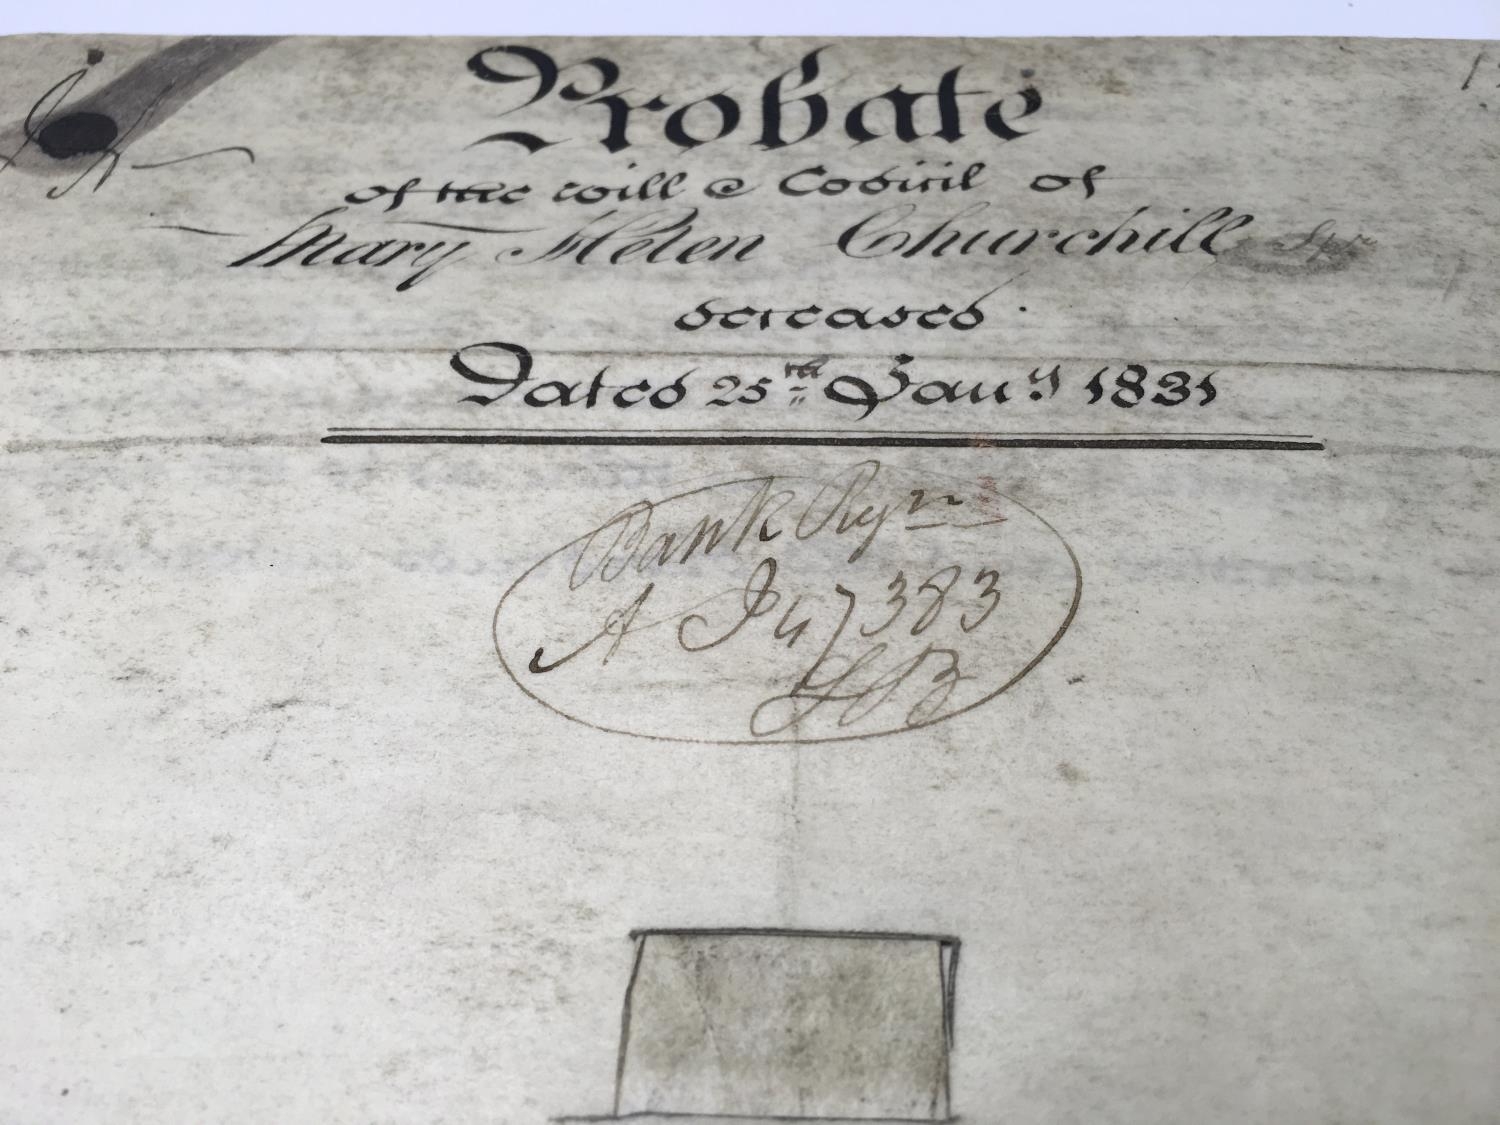 Probate
of the will & Codicil of
Mary Helen Churchill Spr
deceased.
Dated 25th Jany 1831
Bank Regr
A 47383